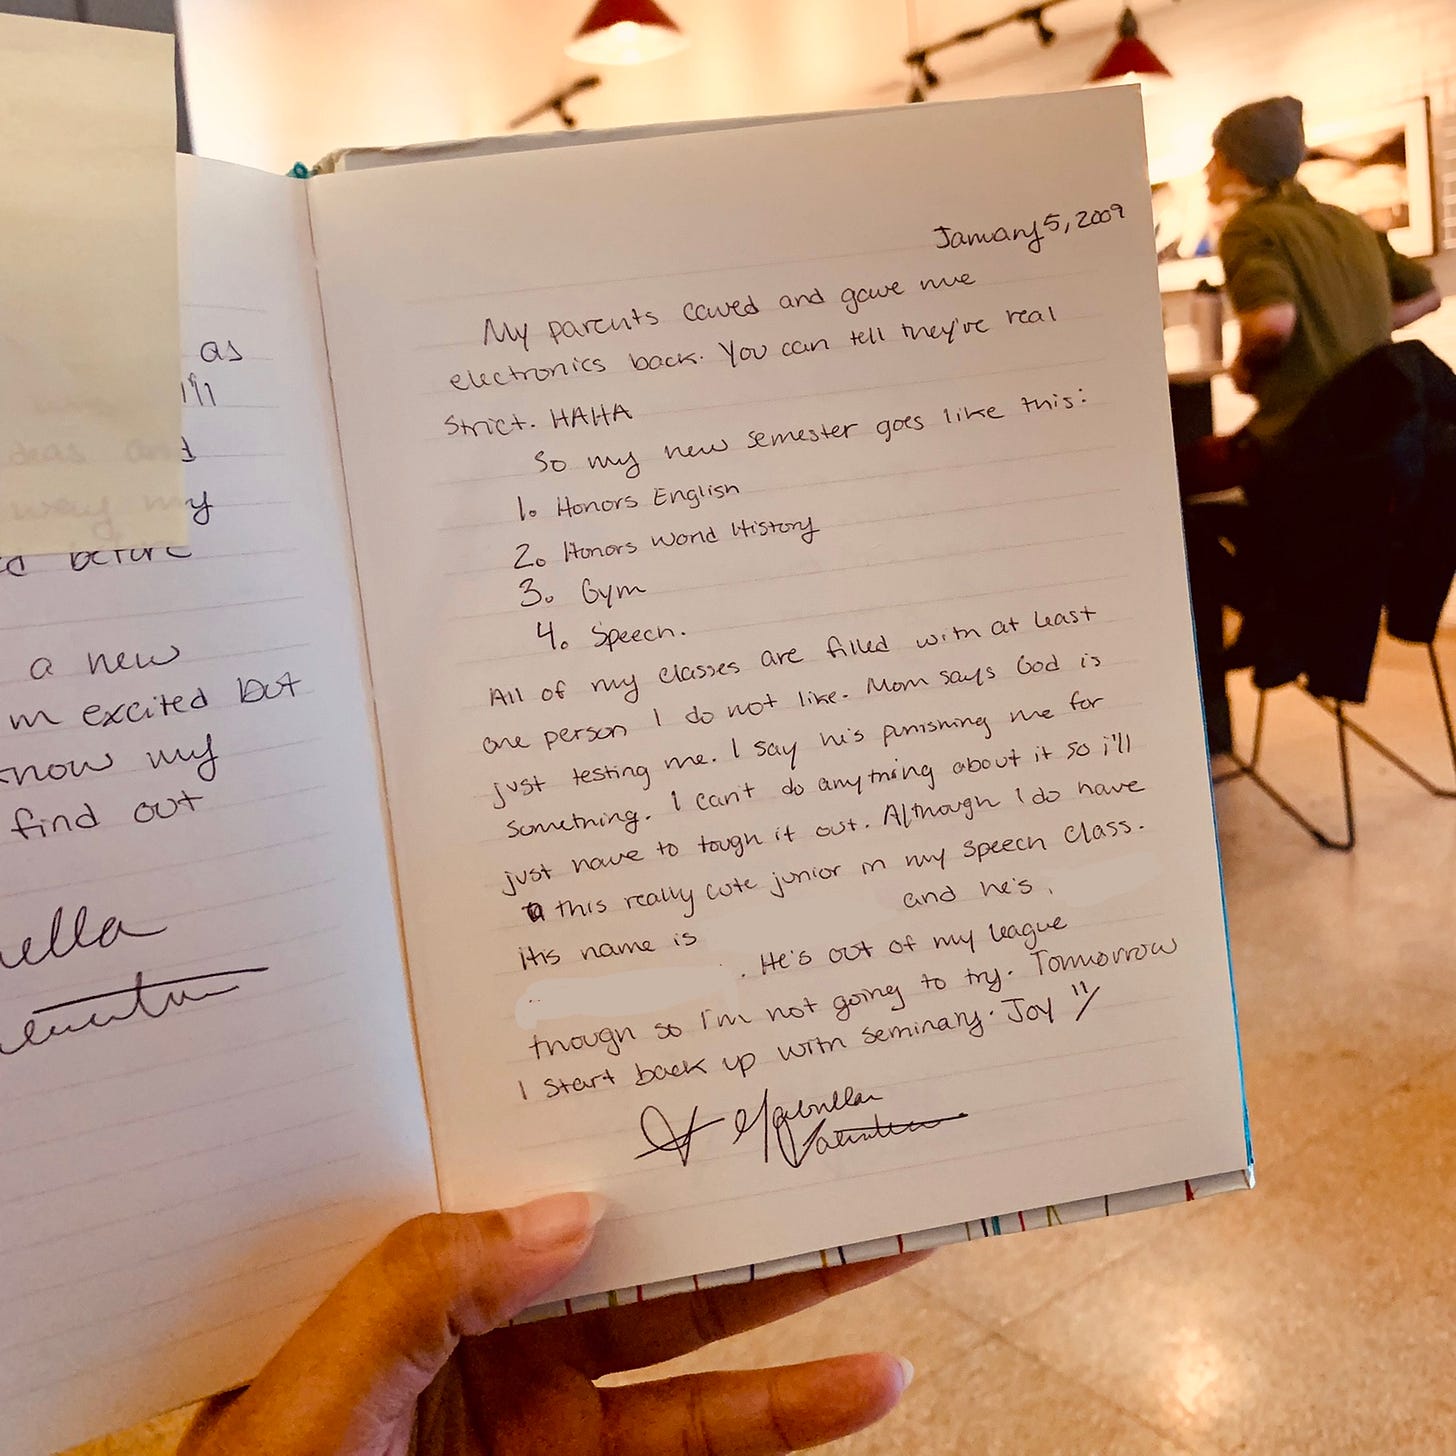 as
i'll
deas and
way my
before
a new
m excited but
know my
find out
ella
January 5, 2009
My parents caved and gave me
electronics back. You can tell they've real
strict. HAHA
So my new semester goes like this:
1. Honors English
2. Honors World History
3. Gym
4. Speech.
All of my classes are filled with at least
one person I do not like. Mom says God is
just testing me. I say he's punishing me for
something. I can't do anything about it so i'll
just have to tough it out. Although I do have
this really cute junior in my speech class.
His name is and he's
. He's out of my league
though so I'm not going to try. Tomorrow
I start back up with seminary. Joy